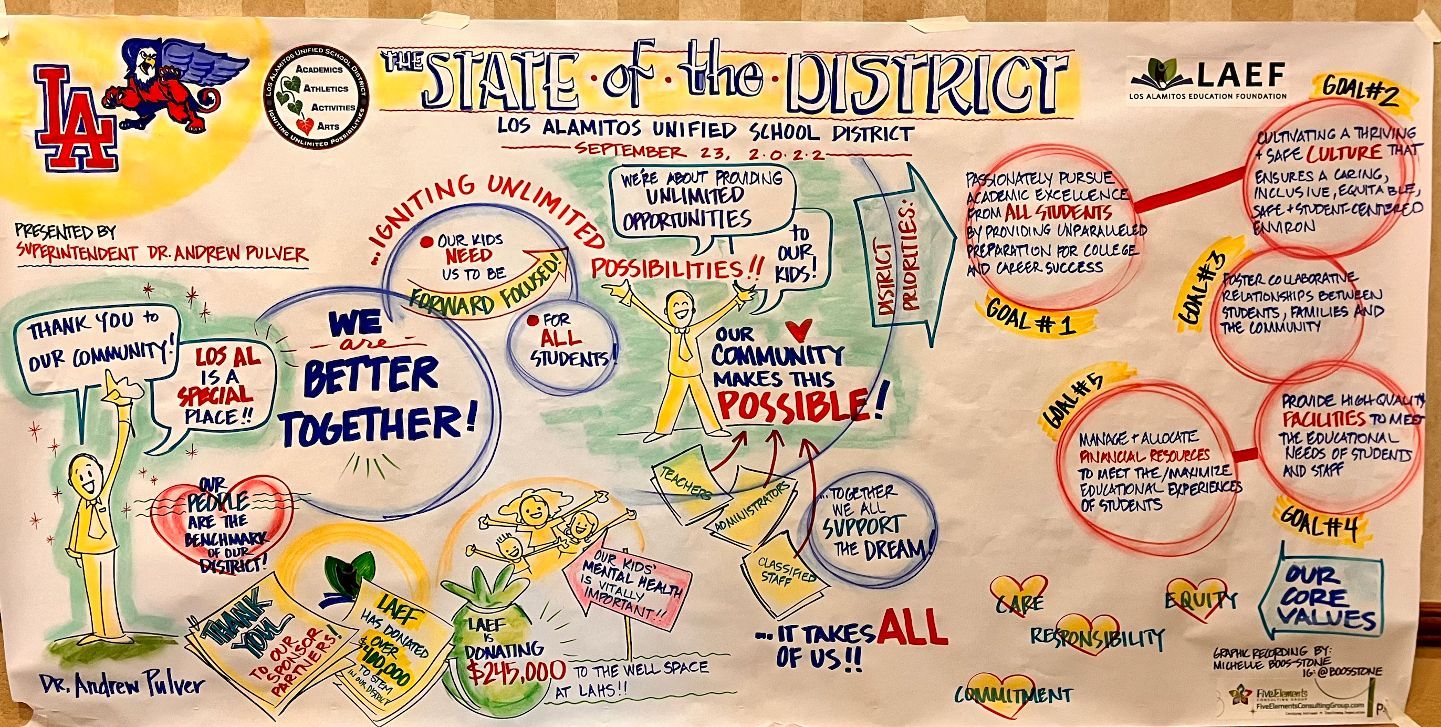 LA
LOS ALAMITOS UNIFIED SCHOOL DISTRICT
IGNITING UNLIMITED POSSIBILITIES
ACADEMICS
ATHLETICS
ACTIVITIES
ARTS
THE STATE • of • the • DISTRICT
LOS ALAMITOS UNIFIED SCHOOL DISTRICT
SEPTEMBER 23, 2.0.2.2
LAEF
LOS ALAMITOS EDUCATION FOUNDATION
PRESENTED BY
SUPERINTENDENT DR. ANDREW PULVER
THANK YOU to
OUR COMMUNITY!
LOS AL
IS A
SPECIAL
PLACE!!
WE
are
BETTER
TOGETHER!
...IGNITING UNLIMITED
POSSIBILITIES!!
OUR KIDS
NEED
US TO BE
FORWARD FOCUSED!
FOR
ALL
STUDENTS!
WE'RE ABOUT PROVIDING
UNLIMITED
OPPORTUNITIES
to
OUR
KIDS!
OUR
COMMUNITY
MAKES THIS
POSSIBLE!
TEACHERS
ADMINISTRATORS
CLASSIFIED
STAFF
...TOGETHER
WE ALL
SUPPORT
THE DREAM!
...IT TAKES ALL
OF US!!
OUR
PEOPLE
ARE THE
BENCHMARK
OF OUR
DISTRICT!
DR. Andrew Pulver
THANK
YOU
TO OUR
SPONSOR
PARTNERS!
LAEF
HAS DONATED
OVER
$400,000
TO STEM
IN OUR DISTRICT
LAEF
IS
DONATING
$245,000 TO THE WELL SPACE
AT LAHS!!
OUR KIDS'
MENTAL HEALTH
IS VITALLY
IMPORTANT!!
DISTRICT
PRIORITIES:
PASSIONATELY PURSUE
ACADEMIC EXCELLENCE
FROM ALL STUDENTS
BY PROVIDING UNPARALLELED
PREPARATION FOR COLLEGE
AND CAREER SUCCESS
GOAL #1
GOAL #2
CULTIVATING A THRIVING
+ SAFE CULTURE THAT
ENSURES A CARING,
INCLUSIVE, EQUITABLE,
SAFE + STUDENT-CENTERED
ENVIRON
GOAL #3
FOSTER COLLABORATIVE
RELATIONSHIPS BETWEEN
STUDENTS, FAMILIES AND
THE COMMUNITY
PROVIDE HIGH QUALITY
FACILITIES TO MEET
THE EDUCATIONAL
NEEDS OF STUDENTS
AND STAFF
GOAL #4
GOAL #5
MANAGE + ALLOCATE
FINANCIAL RESOURCES
TO MEET THE/MAXIMIZE
EDUCATIONAL EXPERIENCES
OF STUDENTS
OUR
CORE
VALUES
CARE
EQUITY
RESPONSIBILITY
COMMITMENT
GRAPHIC RECORDING BY:
MICHELLE BOOS-STONE
IG: @BOOSSTONE
FiveElements
CONSULTING GROUP
FiveElementsConsultingGroup.com